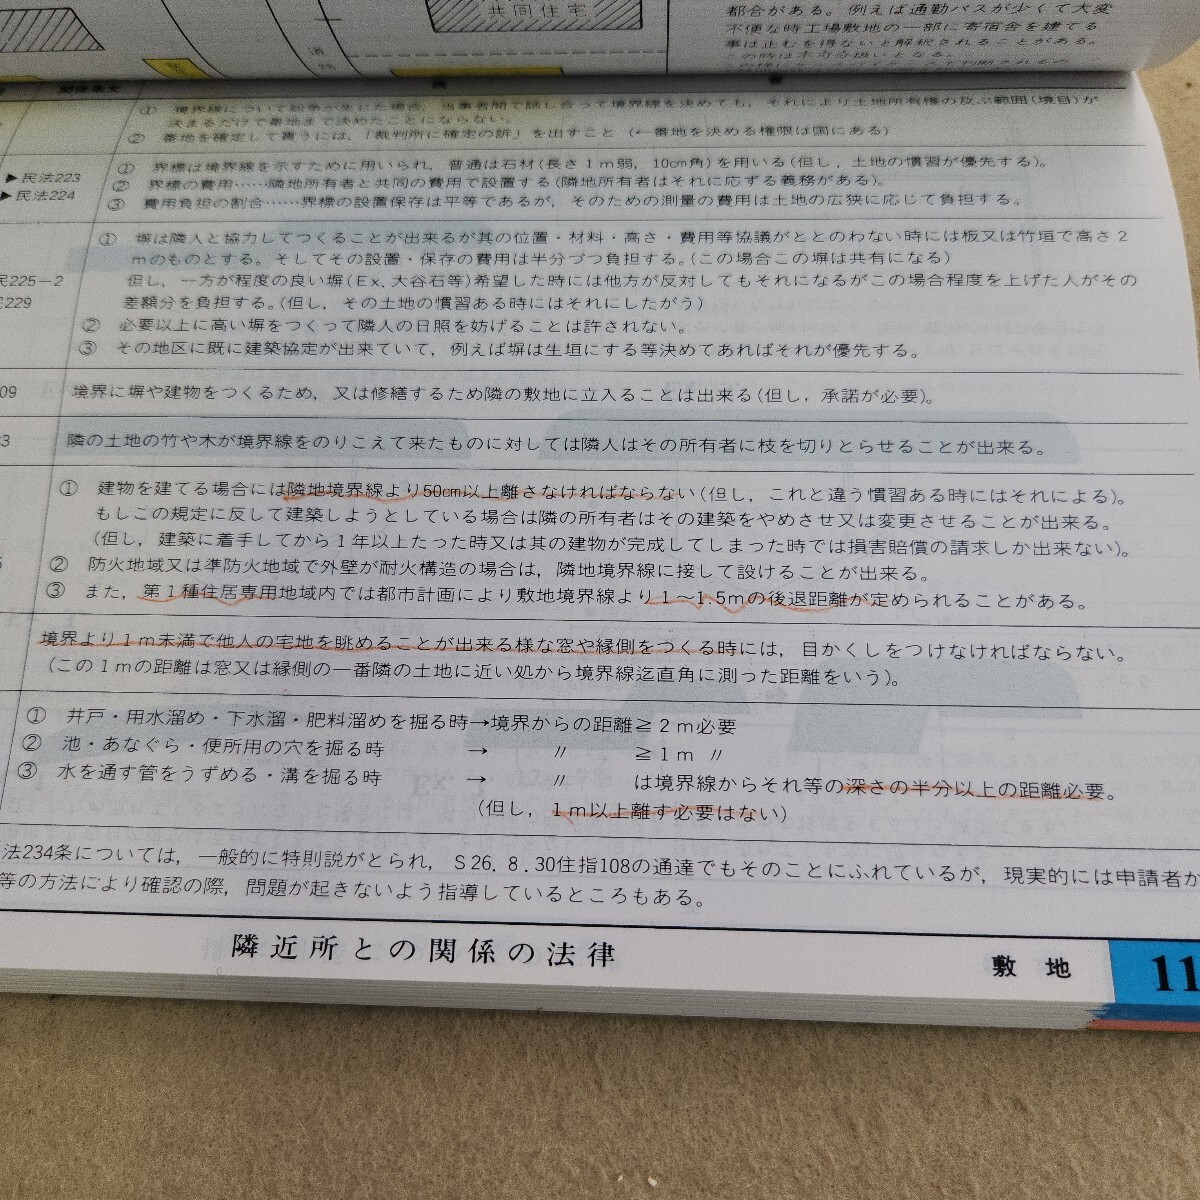 共同住宅
道
都合がある。例えば通勤バスが少くて大変
不便な時工場敷地の一部に寄宿舎を建てる
事は止むを得ないと解釈されることがある。
関係条文
① 境界線について紛争が生じた場合，当事者間で話し合って境界線を決めても，それにより土地所有権の及ぶ範囲(境目)が
決まるだけで番地まで決めたことにならない。
② 番地を確定して貰うには，「裁判所に確定の訴」を出すこと（←番地を決める権限は国にある）
▶民法223
▶民法224
① 界標は境界線を示すために用いられ，普通は石材(長さ１ｍ弱，10㎝角)を用いる(但し，土地の慣習が優先する)。
② 界標の費用……隣地所有者と共同の費用で設置する(隣地所有者はそれに応ずる義務がある)。
③ 費用負担の割合……界標の設置保存は平等であるが，そのための測量の費用は土地の広狭に応じて負担する。
民225－2
229
① 塀は隣人と協力してつくることが出来るが其の位置・材料・高さ・費用等協議がととのわない時には板又は竹垣で高さ２
ｍのものとする。そしてその設置・保存の費用は半分づつ負担する。(この場合この塀は共有になる)
但し，一方が程度の良い塀(Ex，大谷石等)希望した時には他方が反対してもそれになるがこの場合程度を上げた人がその
差額分を負担する。(但し，その土地の慣習ある時にはそれにしたがう)
② 必要以上に高い塀をつくって隣人の日照を妨げることは許されない。
③ その地区に既に建築協定が出来ていて，例えば塀は生垣にする等決めてあればそれが優先する。
09
境界に塀や建物をつくるため，又は修繕するため隣の敷地に立入ることは出来る(但し，承諾が必要)。
3
隣の土地の竹や木が境界線をのりこえて来たものに対しては隣人はその所有者に枝を切りとらせることが出来る。
① 建物を建てる場合には隣地境界線より50㎝以上離さなければならない(但し，これと違う慣習ある時にはそれによる)。
もしこの規定に反して建築しようとしている場合は隣の所有者はその建築をやめさせ又は変更させることが出来る。
(但し，建築に着手してから１年以上たった時又は其の建物が完成してしまった時では損害賠償の請求しか出来ない)。
② 防火地域又は準防火地域で外壁が耐火構造の場合は，隣地境界線に接して設けることが出来る。
③ また，第１種住居専用地域内では都市計画により敷地境界線より１～1.5ｍの後退距離が定められることがある。
境界より１ｍ未満で他人の宅地を眺めることが出来る様な窓や縁側をつくる時には，目かくしをつけなければならない。
(この１ｍの距離は窓又は縁側の一番隣の土地に近い処から境界線迄直角に測った距離をいう)。
① 井戸・用水溜め・下水溜・肥料溜めを掘る時→境界からの距離≧２ｍ必要
② 池・あなぐら・便所用の穴を掘る時 → 〃 ≧１ｍ 〃
③ 水を通す管をうずめる・溝を掘る時 → 〃 は境界線からそれ等の深さの半分以上の距離必要。
(但し，１ｍ以上離す必要はない)
法234条については，一般的に特則説がとられ，Ｓ26．8．30住指108の通達でもそのことにふれているが，現実的には申請者か
等の方法により確認の際，問題が起きないよう指導しているところもある。
隣近所との関係の法律
敷 地
11